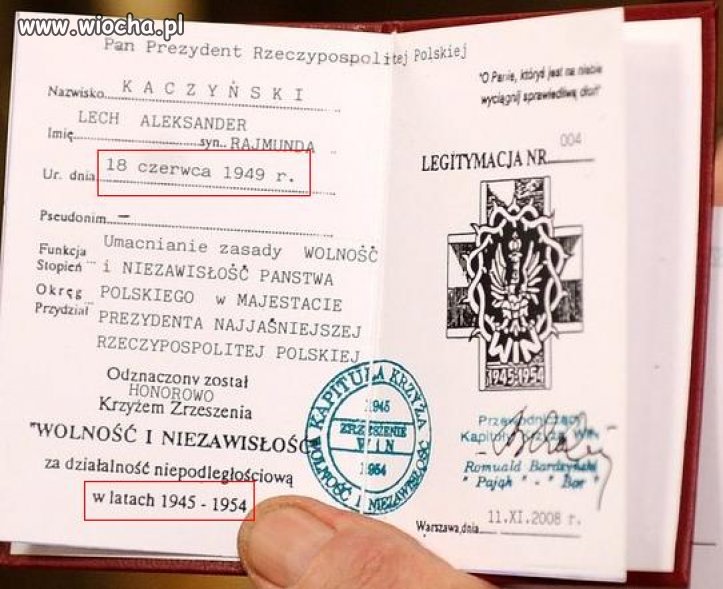 www.wiocha.pl
Pan Prezydent Rzeczypospolitej Polskiej
Nazwisko KACZYŃSKI
LECH ALEKSANDER
Imię syn. RAJMUNDA
Ur. dnia 18 czerwca 1949 r.
Pseudonim —
Funkcja Umacnianie zasady WOLNOŚĆ
Stopień i NIEZAWISŁOŚĆ PANSTWA
Okręg POLSKIEGO w MAJESTACIE
Przydział PREZYDENTA NAJJAŚNIEJSZEJ
RZECZYPOSPOLITEJ POLSKIEJ
Odznaczony został
HONOROWO
Krzyżem Zrzeszenia
"WOLNOŚĆ I NIEZAWISŁOŚĆ
za działalność niepodległościową
w latach 1945 - 1954
KAPITUŁA KRZYŻA
1945
ZRZESZENIE
WIN
1954
WOLNOŚĆ I NIEZAWISŁOŚĆ
"O Panie, któryś jest na niebie
wyciągnij sprawiedliwą dłoń"
LEGITYMACJA NR. 004
WIN
1945-1954
Przewodniczący
Kapituły Krzyża WiN
Romuald Bardzyński
"Pająk" - "Bor"
Warszawa, dnia 11.XI.2008 r.